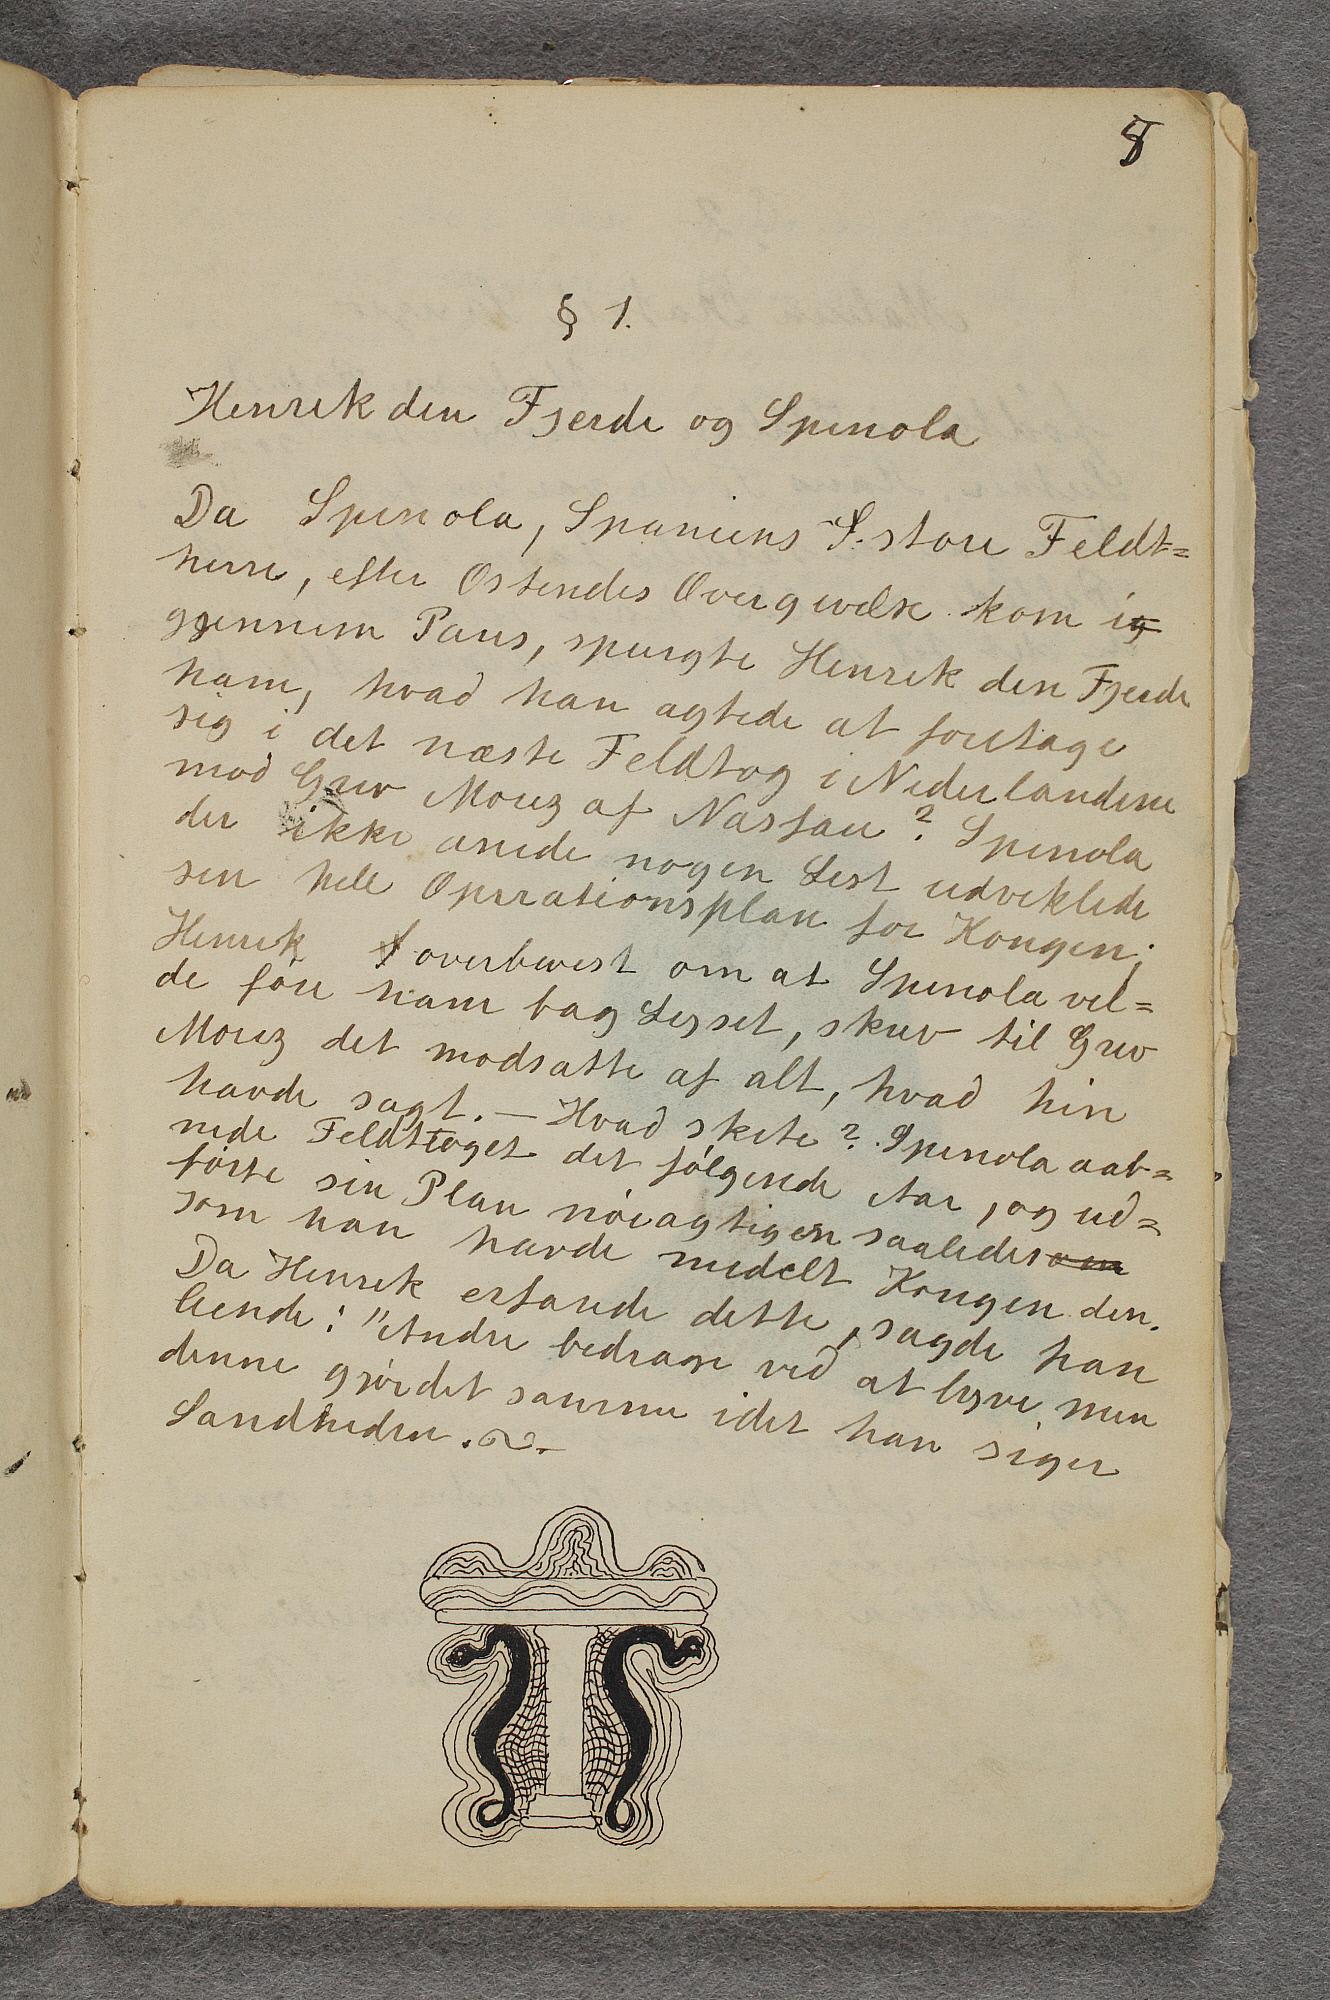 8
§ 1.
Henrik den Fjerde og Spinola
Da Spinola, Spaniens S. store Feldt=
herre, efter Ostendes Overgivelse kom ig
gjennem Paris, spurgte Henrik den Fjerde
ham, hvad han agtede at foretage
sig i det næste Feldtog i Nederlandene
mod Grev Moriz af Nassau? Spinola
der ikke anede nogen List udviklede
sin hele Operationsplan for Kongen;
Henrik overbevist om at Spinola vil=
de føre ham bag Lyset, skrev til Grev
Moriz det modsatte af alt, hvad hin
havde sagt. — Hvad skete? Spinola aab=
nede Feldttoget det følgende Aar, og ud=
førte sin Plan nøiagtigen saaledes om
som han havde medelt Kongen den.
Da Henrik erfarede dette, sagde han
leende: "Andre bedrage ved at lyve, men
denne gjør det samme idet han siger
Sandheden.